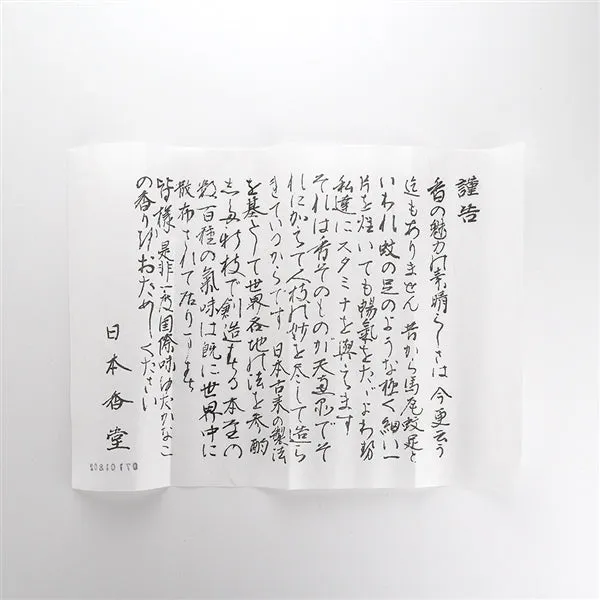 謹告
香の魅力の素晴らしさは 今更云う
迄もありません 昔から馬尾蚊足と
いわれ 蚊の足のような極く細い一
片を炷いても暢氣をたゞよわ
私達にスタミナを與えます
それは香そのものが天でそ
れにかえて人技の妙を尽して造ら
きているからです 日本古来の製法
を基として世界各地の法を参酌
し 新技で創造せる本堂の
数百種の氣味は既に世界中に
散布されて居ります
皆様 是非一度国際味ゆたかなこ
の香りをおためしください
日本香堂
07101802